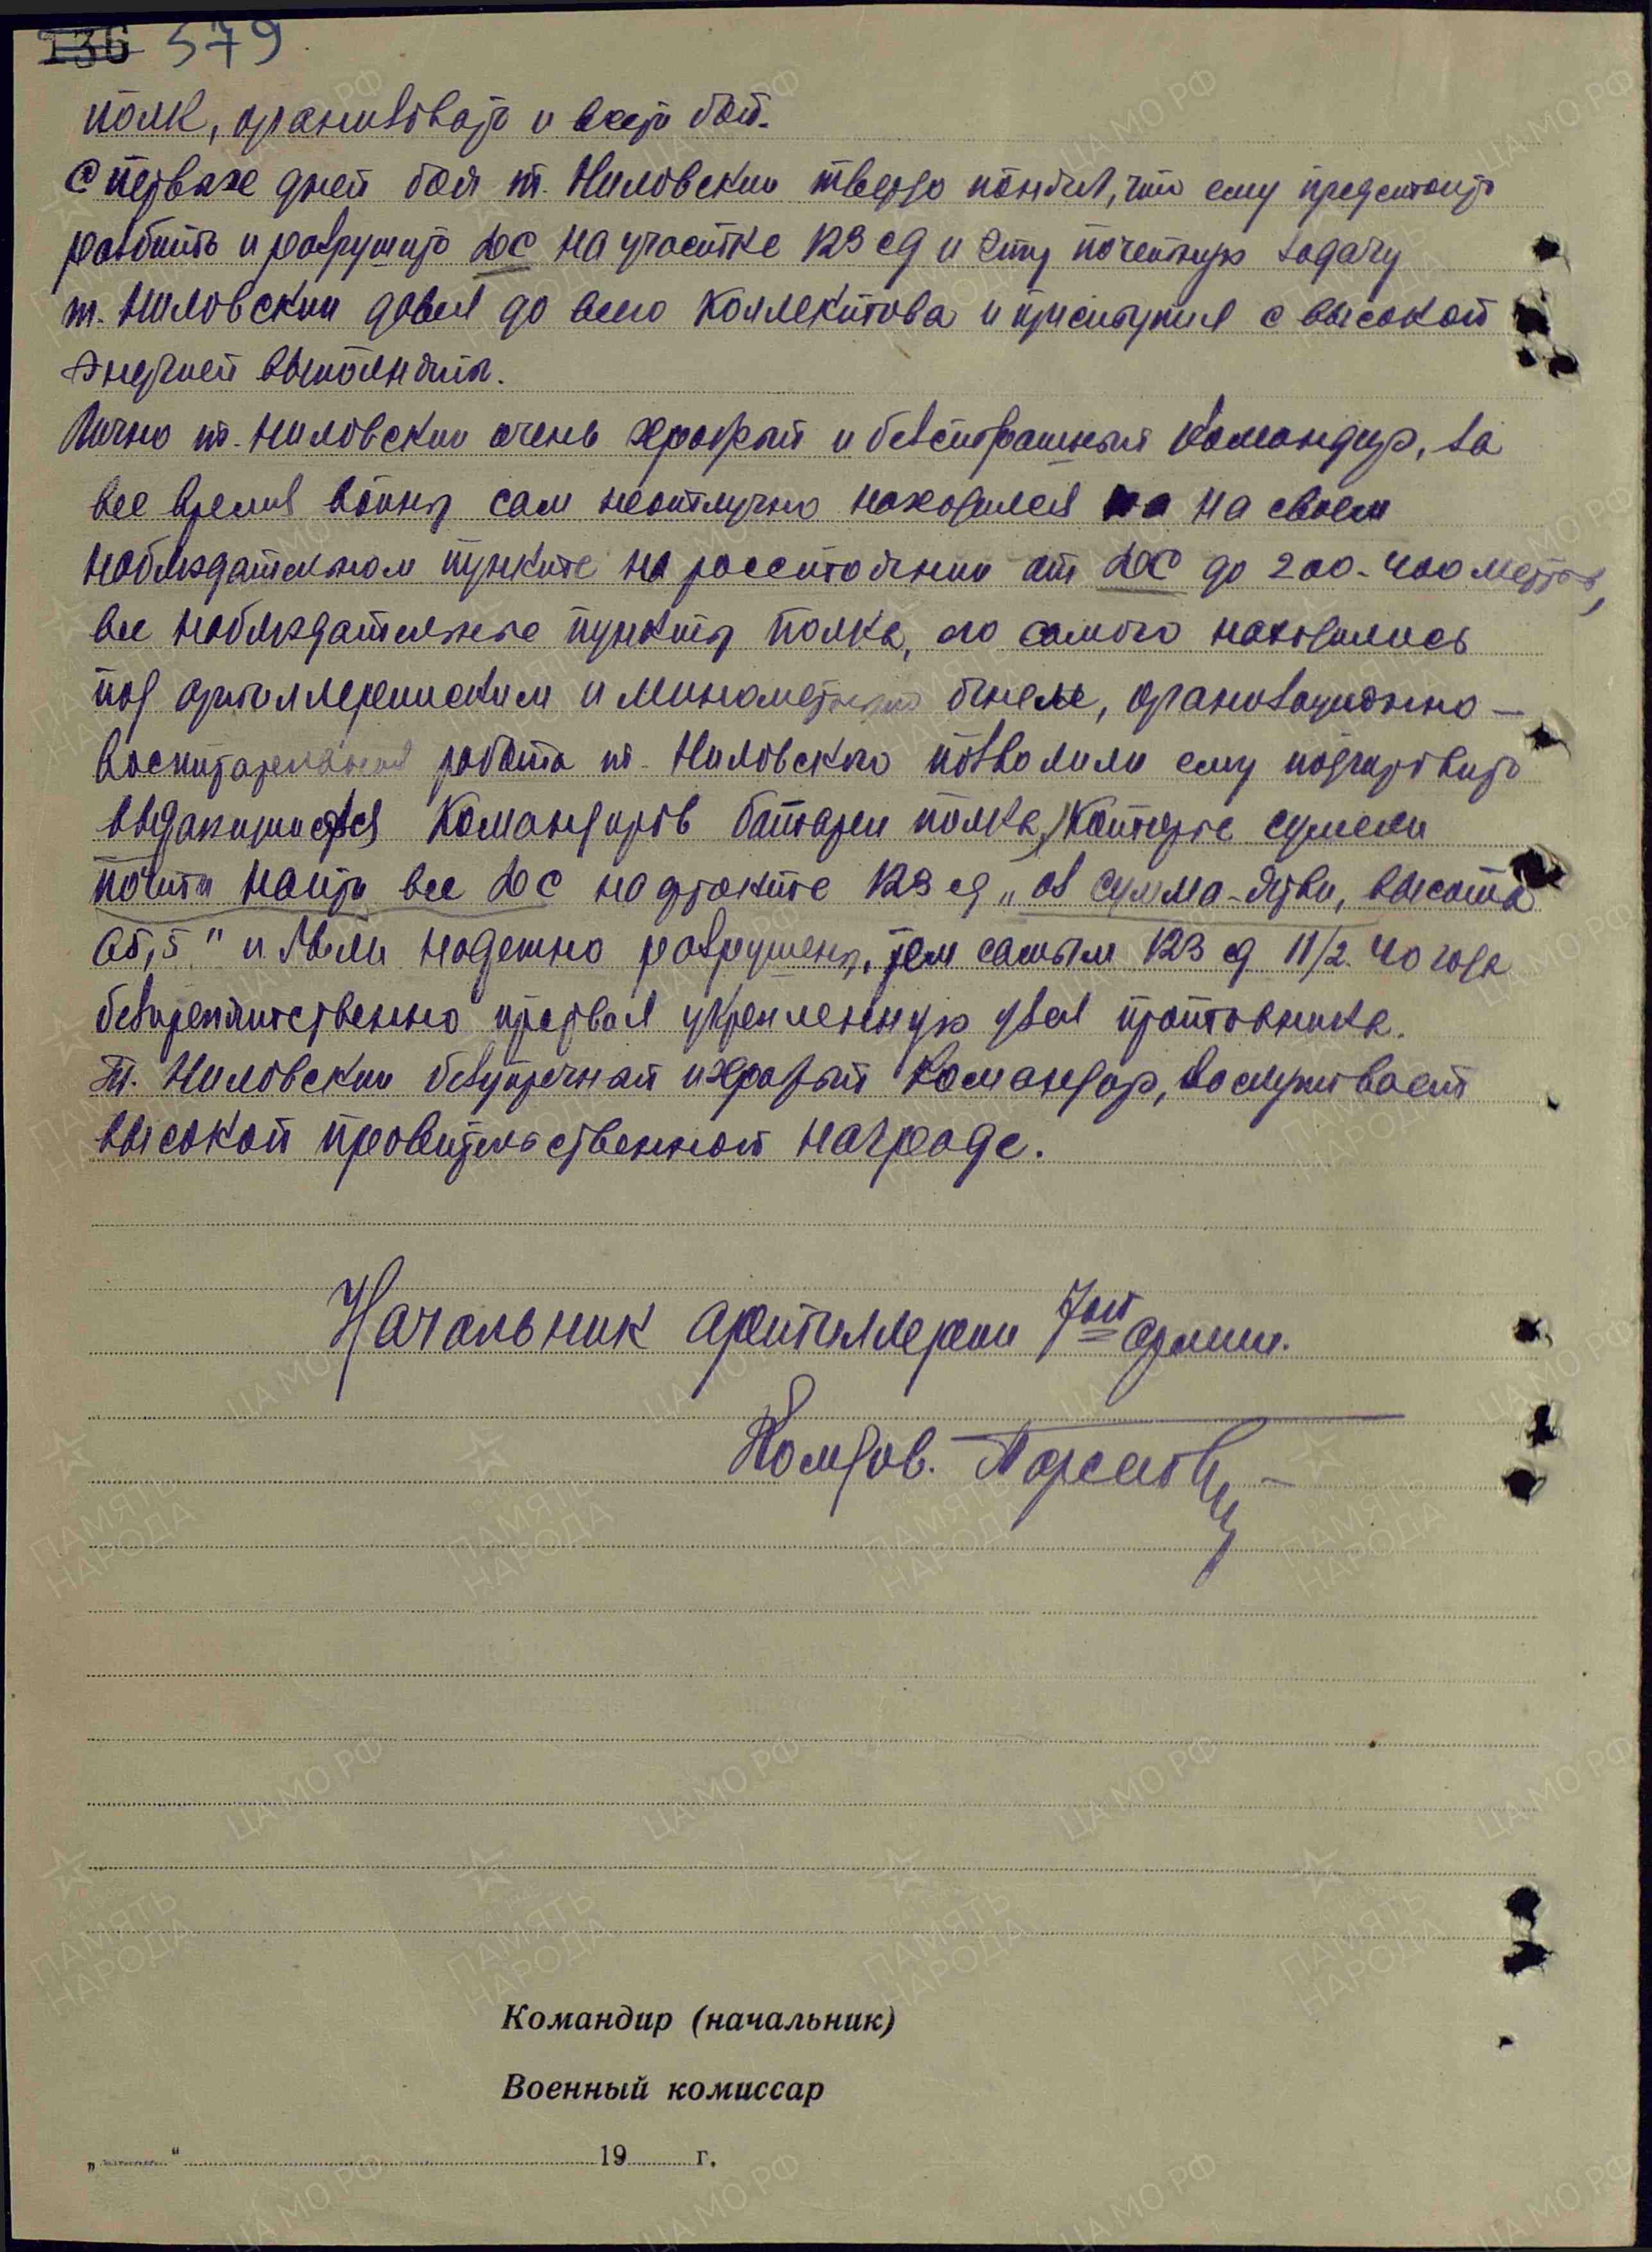 136 579
полк, организовать и вести бой.
С первых дней боя т. Ниловский твердо понял, что ему предстоит
разбить и разрушить ДОС на участке 123 сд и эту почетную задачу
т. Ниловский довел до всего коллектива и приступил с высокой
энергией выполнять.
Лично т. Ниловский очень храбрый и безстрашный командир, за
все время войны сам неотлучно находился на на своем
наблюдательном пункте на расстоянии от ДОС до 200-400 метров,
все наблюдательные пункты полка, его самого находились
под артиллерийским и минометным огнем, организационно-
воспитательная работа т. Ниловского позволили ему подготовить
выдающиеся командиров батареи полка, которые сумели
почти найти все ДОС на участке 123 сд "оз сумма-ярви, высота
65,5" и были надежно разрушены, тем самым 123 сд 11/2. 40 года
безпрепятственно прорвал укрепленную узел противника.
Т. Ниловский безупречный и храбрый командир, заслуживает
высокой правительственной награде.
Начальник артиллерии 7ой армии.
Комдив. Парсегов
Командир (начальник)
Военный комиссар
„ “ 19 г.